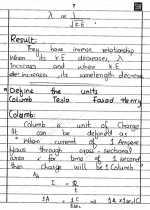 7
λ ∝ 1/√KE
Result:
They have inverse relationship
When its KE decreases, λ
increases and when KE
increases, its wavelength decreases
Define the units
Columb Tesla Farad Henry
Columb:
Columb is unit of Charge
It can be defined as
"When current of 1 Ampere
flows through cross-sectional
area for time of 1 second
then charge will be 1 Columb"
As
I = Q/t
1A = 1C/1sec 1A x 1sec = 1C